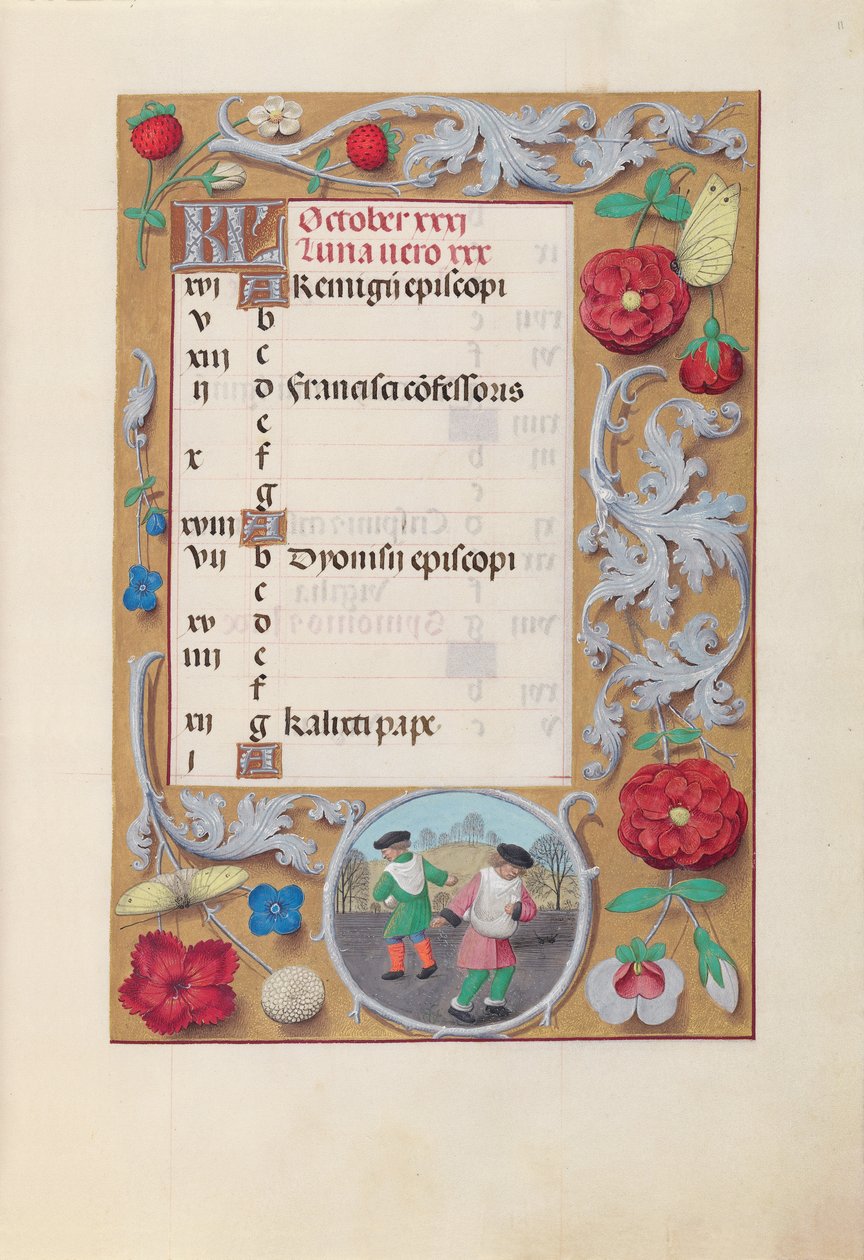 KL October xxxj
Luna uero xxx
xvj A Remigij episcopi
v b
xiij c
ij d Francisci cõfessoris
e
x f
g
xviij A
vij b Dyonisij episcopi
c
xv d
iiij e
f
xij g kalixti pape
j A